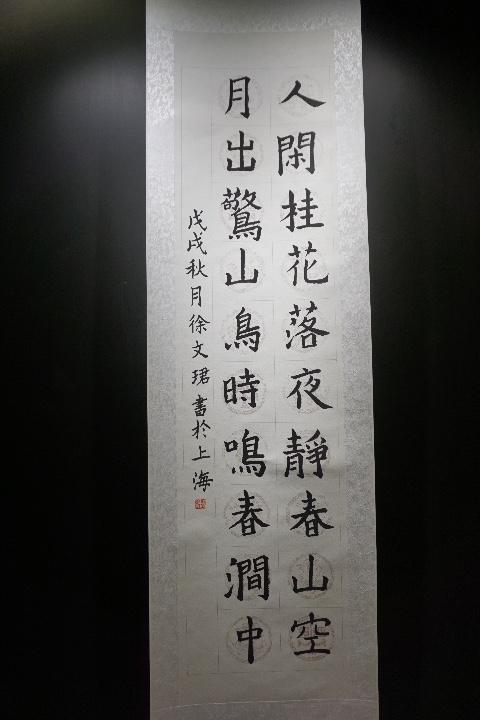 人閑桂花落夜靜春山空
月出驚山鳥時鳴春澗中
戊戌秋月徐文珺書於上海